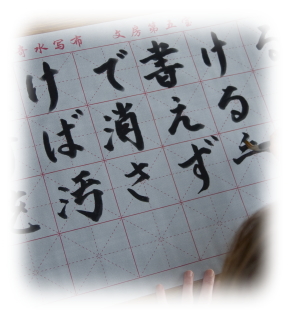 水写布 文房第五
けで書ける
ば消える
汚さず